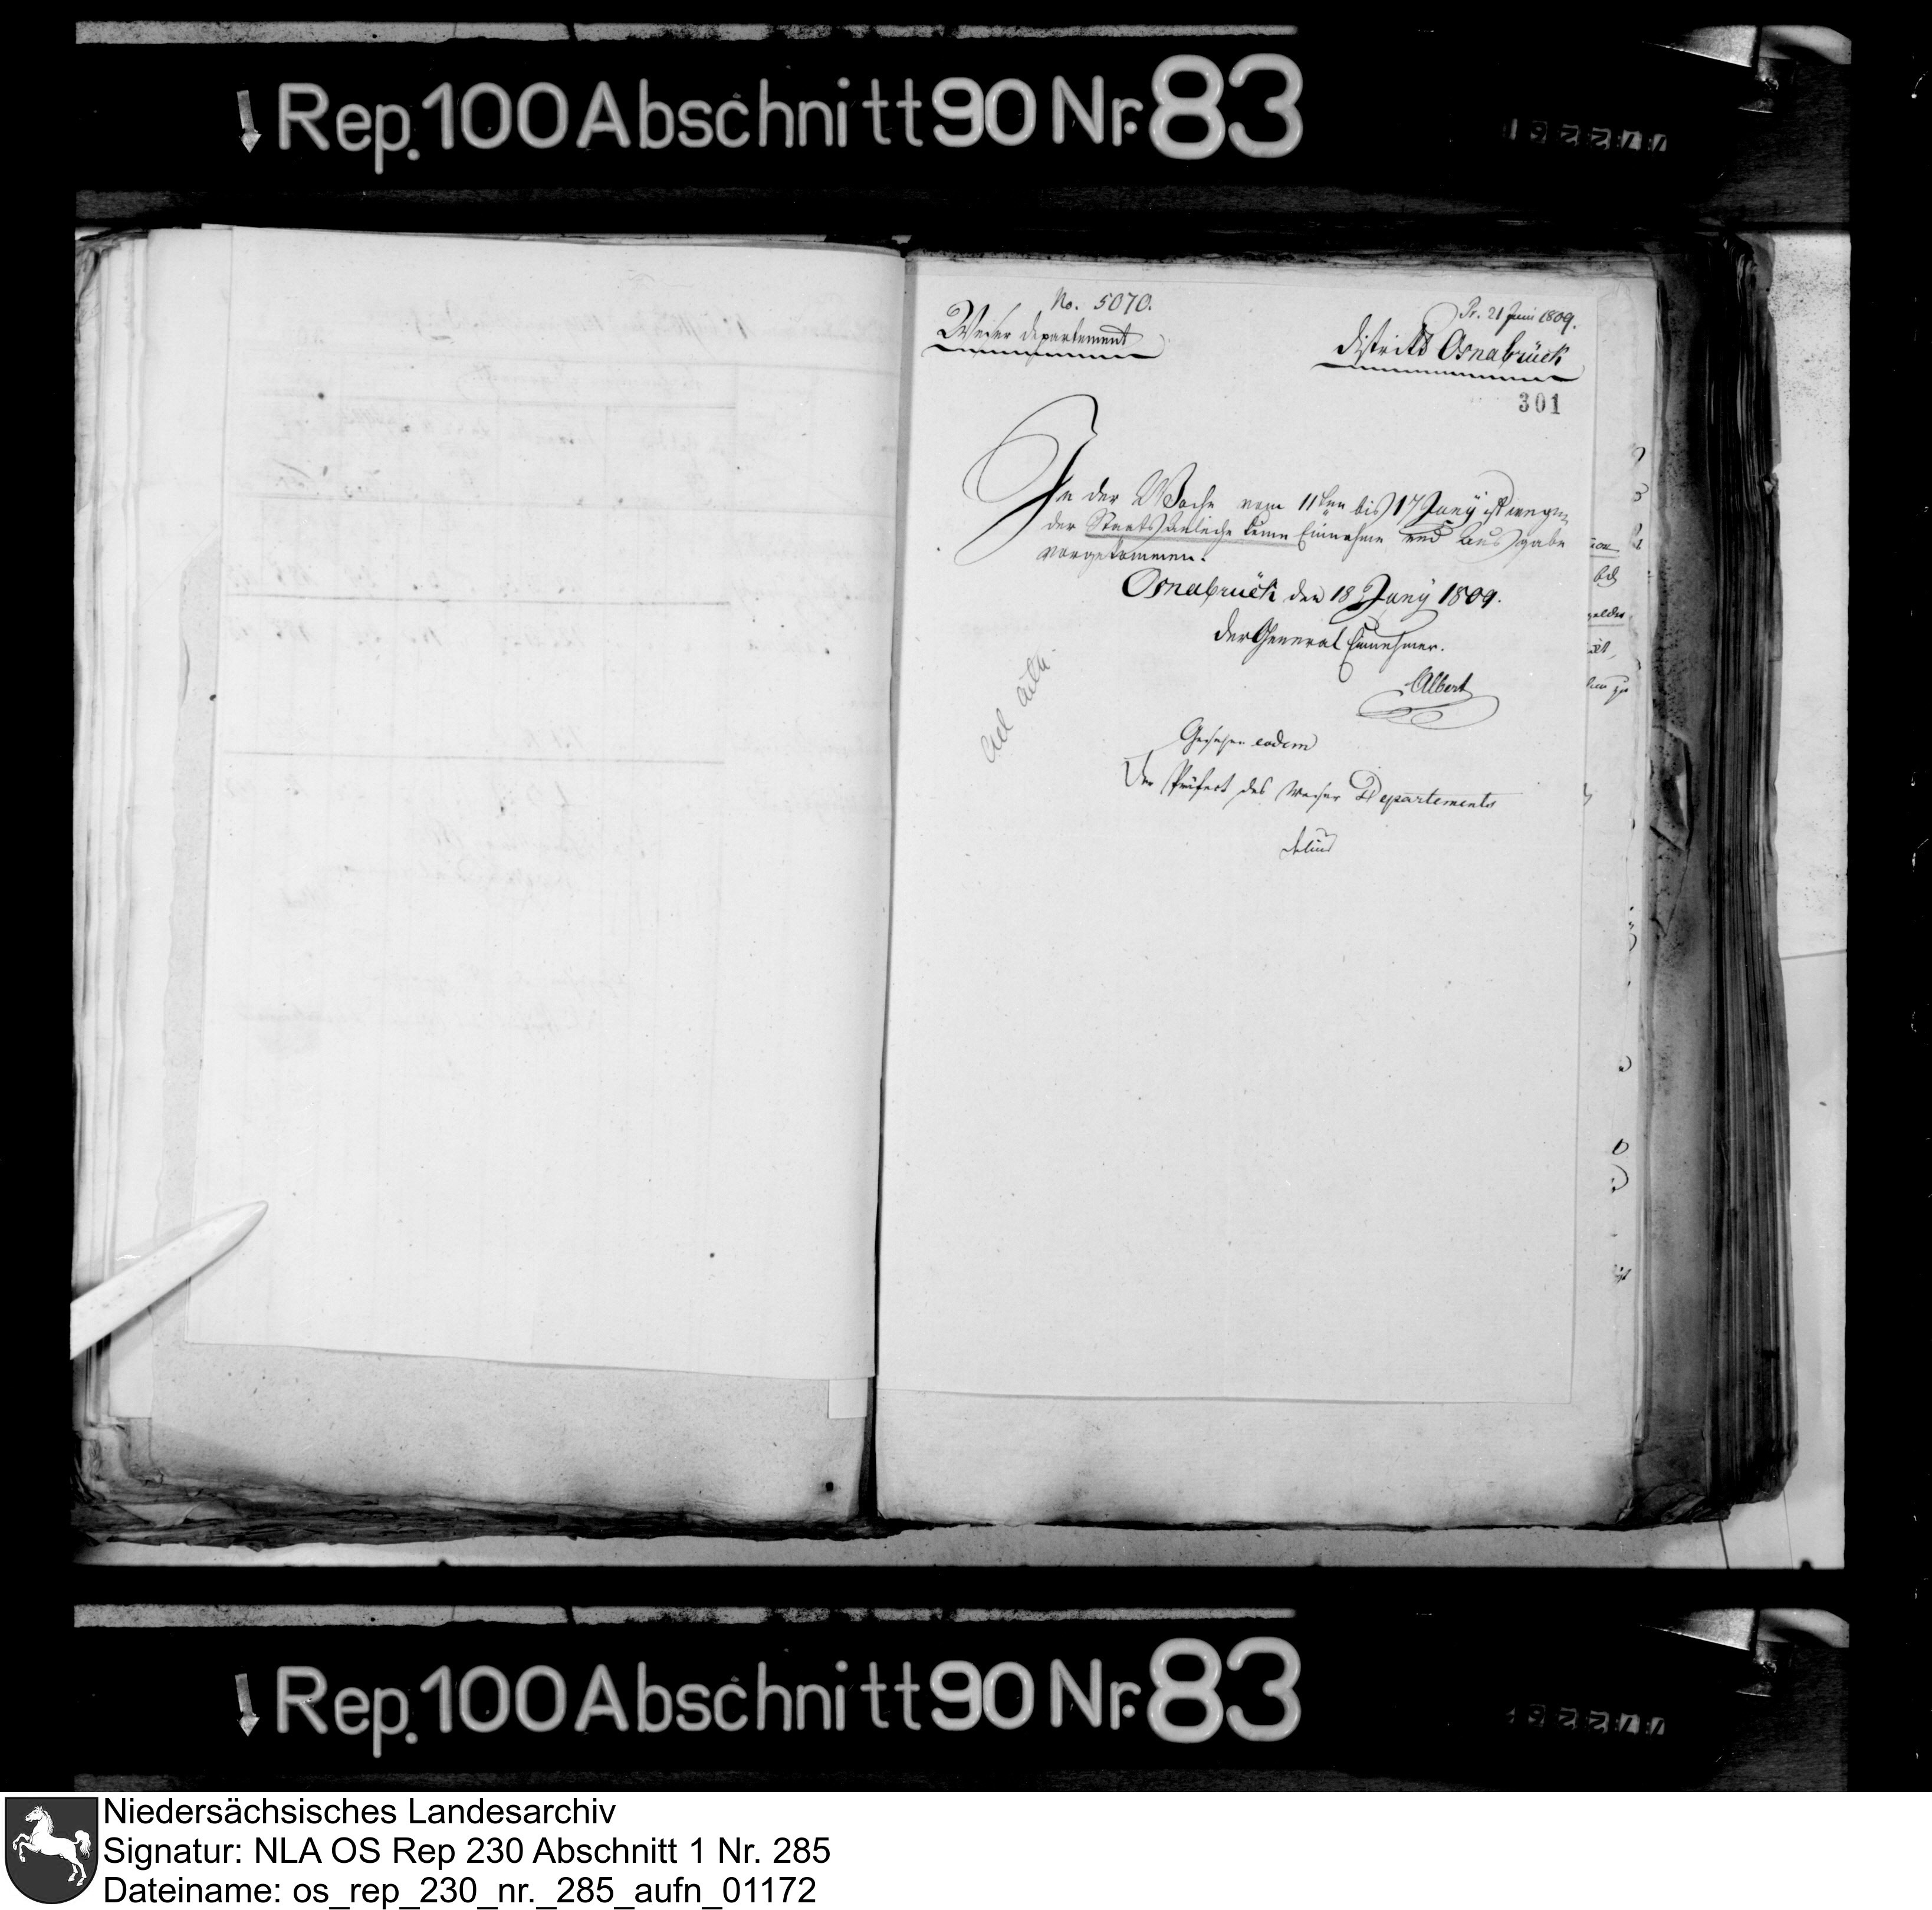 Rep. 100 Abschnitt 90 Nr. 83
No. 5070.
Weser Departement
Pr. 21 Juni 1809.
District Osnabrück
301
In der Woche vom 11ten bis 17 Juny ist wegen
der Staats Anleihe keine Einnahme und Ausgabe
vorgekommen.
Osnabrück den 18 Juny 1809.
Der General Einnehmer.
Albert
ad acta
Gesehen eodem
Der Präfect des Weser Departements
Delius
Rep. 100 Abschnitt 90 Nr. 83
Niedersächsisches Landesarchiv
Signatur: NLA OS Rep 230 Abschnitt 1 Nr. 285
Dateiname: os_rep_230_nr._285_aufn_01172